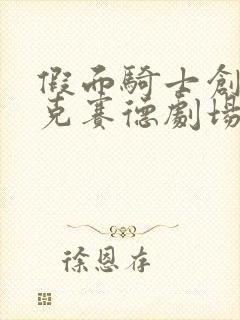 假面騎士創
克賽德劇場
徐恩存